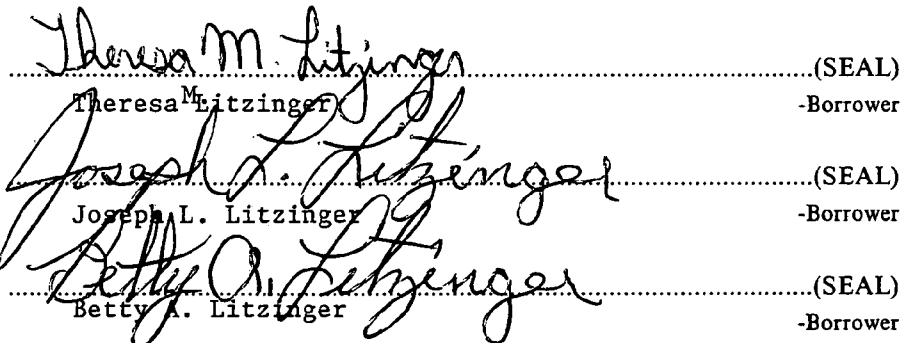 Theresa M. Litzinger (SEAL)
Theresa M. Litzinger -Borrower
Joseph L. Litzinger (SEAL)
Joseph L. Litzinger -Borrower
Betty A. Litzinger (SEAL)
Betty A. Litzinger -Borrower